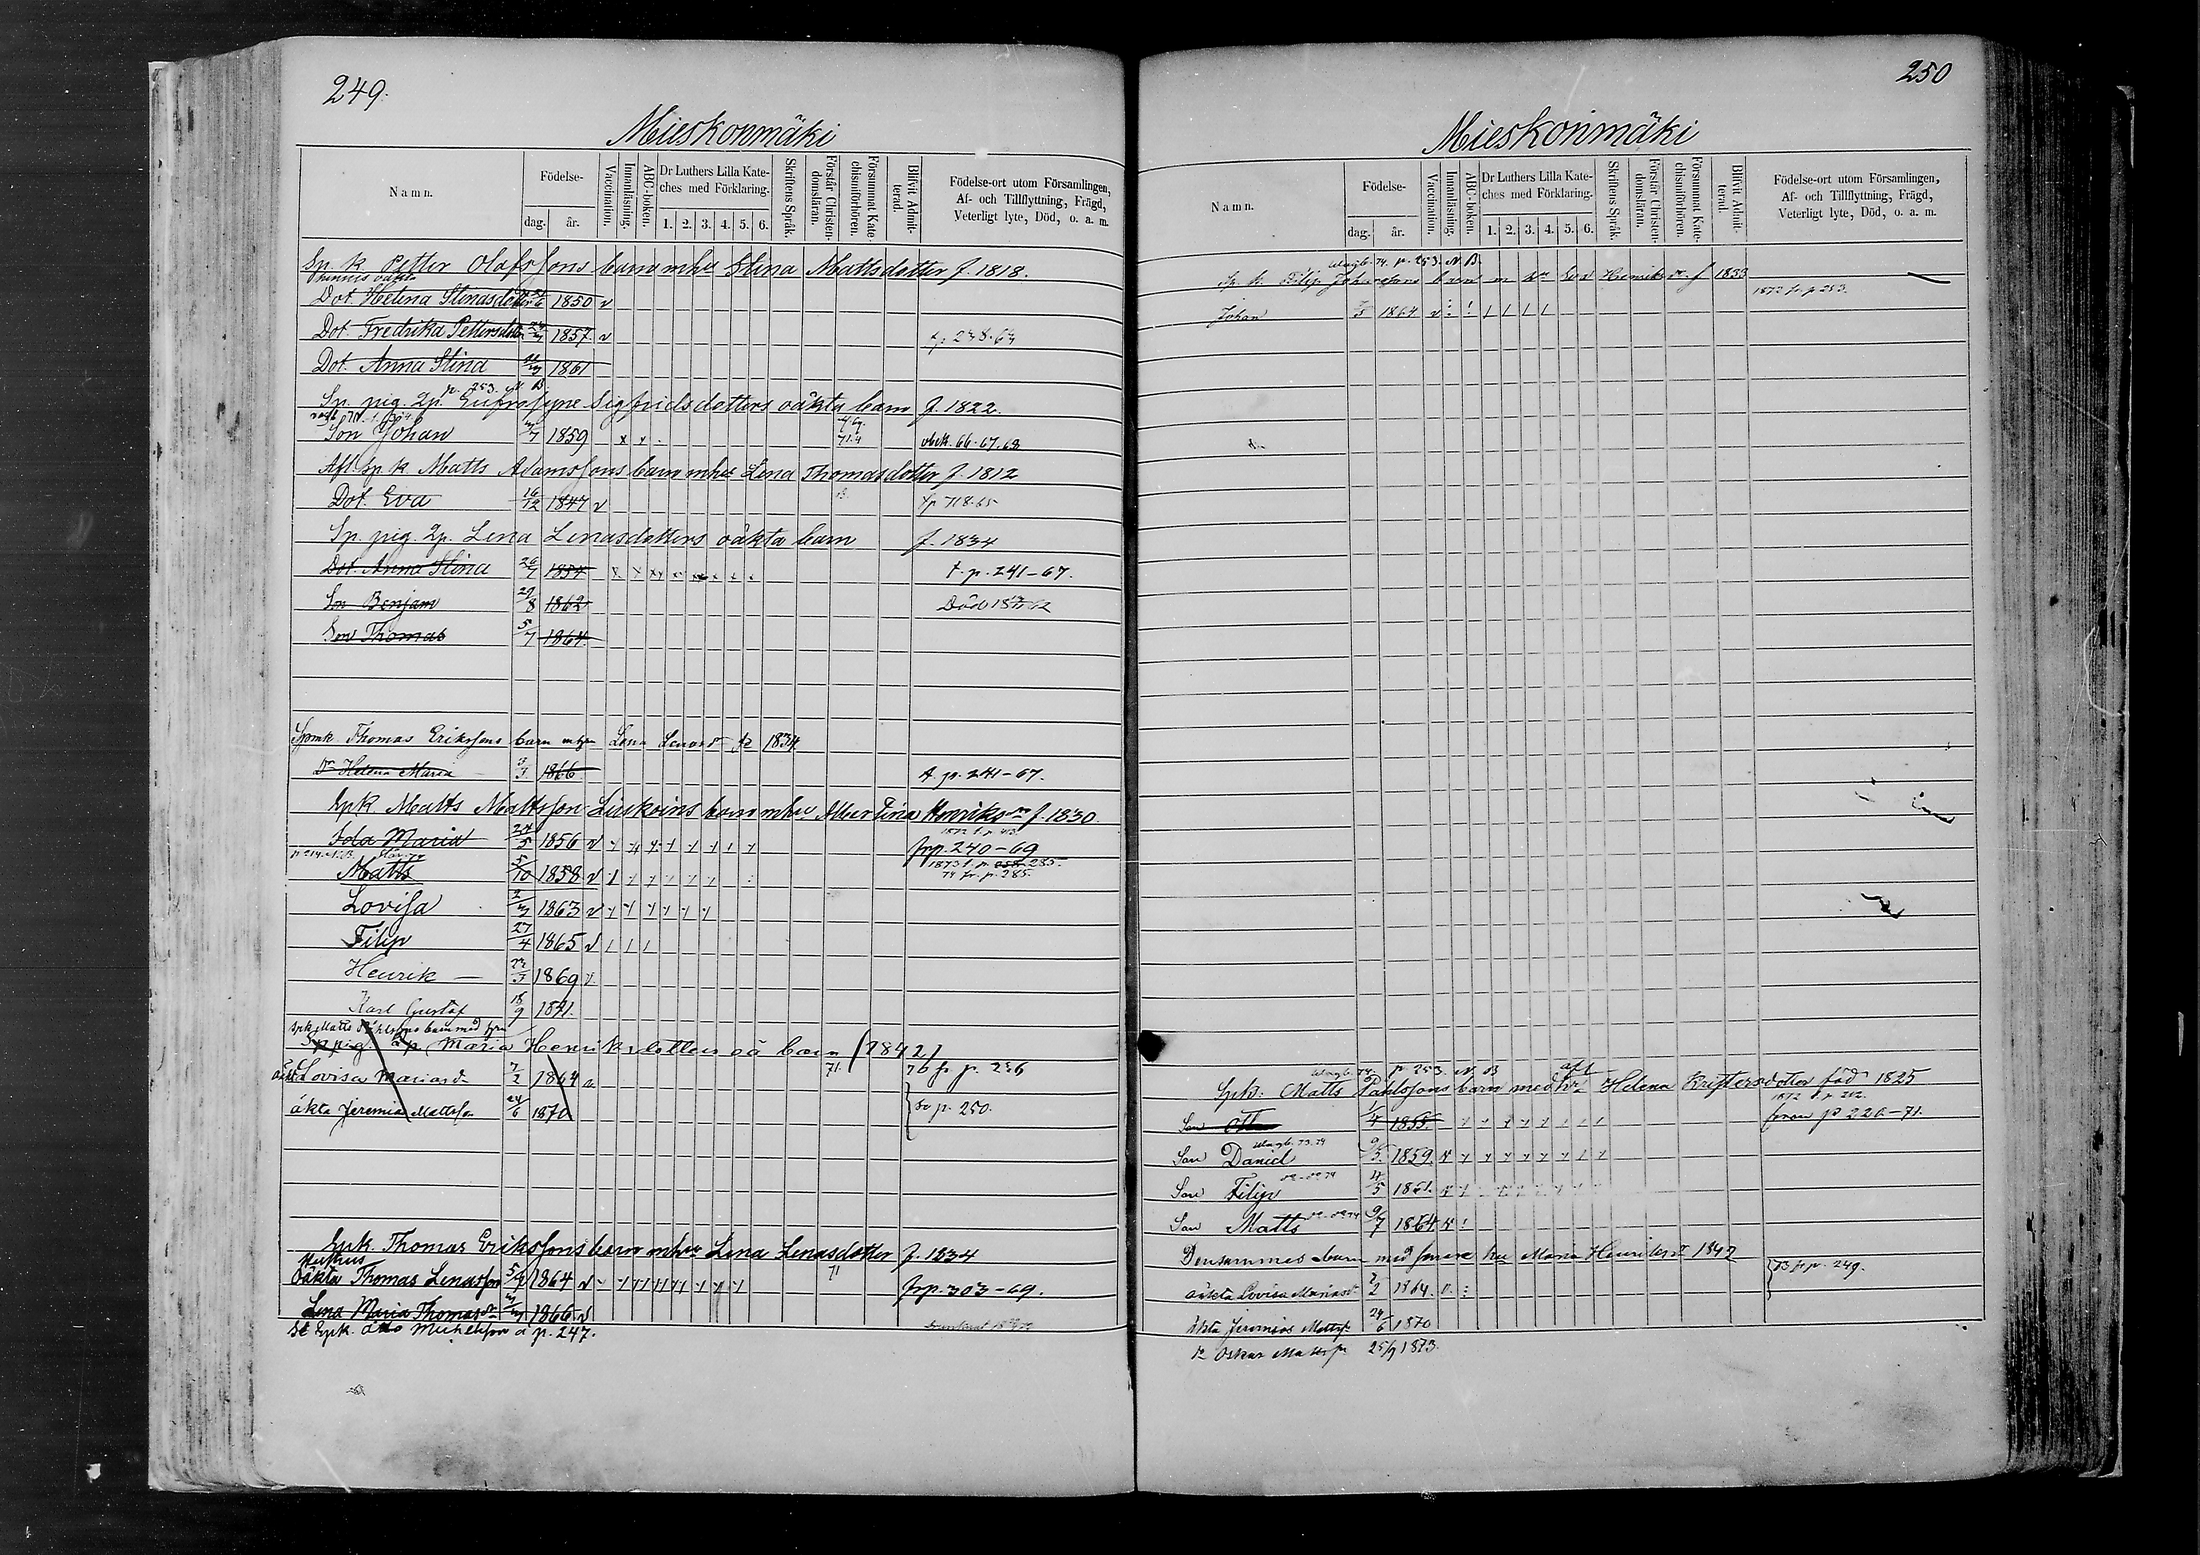 249.
Mieskonmäki
Namn.
Födelse-
dag. år.
Vaccination.
Innanläsning.
ABC-boken.
Dr Luthers Lilla Kate-
ches med Förklaring.
1. 2. 3. 4. 5. 6.
Skriftens Språk.
Förstår Christen-
domsläran.
Försummat Kate-
chismiförhören.
Blifvit Admit-
terad.
Födelse-ort utom Församlingen,
Af- och Tillflyttning, Frägd,
Veterligt lyte, Död, o. a. m.
Sp. k Petter Olofssons barn mhu Stina Mattsdotter f. 1818.
Dot. Helena Stinasdotter 1850 v
Dot. Fredrika Pettersdotr 1857. v
Dot. Anna Stina 1861
p. 253. N B
Sp. pig. 2p. Eufrosyne Sigfridsdotters oäkta barn f. 1822.
Son Johan 1859 x x obek. 66. 67. 68
Afl. sp k Matts Adamssons barn mhu Lena Thomasdotter f. 1812
Dot. Eva 16/12 1847 v fp 718-65
Sp. pig. 2p. Lena Lenasdotters oäkta barn f. 1834
Dot. Anna Stina 26/7 1854 t. p. 241-67.
Son Benjam 29/8 1862 Död
Son Thomas 5/7 1864.
Spmk. Thomas Erikssons barn m hu Lena Lenasdr fö 1834
Dr Helena Maria 3/3 1866 t. p. 241-67.
Spk Matts Mattsson Liukoins barn mhu Albertina Henriksdr f. 1830.
Sofa Maria 24/5 1856 v frp. 240-69
Matts 5/10 1858 v 1873 t. p. 285.
74 fr. p. 285.
Lovisa 2/3 1863 v
Filip 27/4 1865 v
Henrik 1869 v.
Karl Gustaf 18/9 1871.
Spk Matts Påhlssons barn med hu
Sp pig. 2p. Maria Henriksdotters oä barn (1842)
oäkta Lovisa Mariasdr 7/2 1864 71. 76 fr p. 236
äkta Jeremias Mattsson 24/6 1870 Se p. 250.
Spk. Thomas Erikssons barn mhu Lena Lenasdotter f. 1834
oäkta Thomas Lenasson 5/7 1864 v 71 frp. 303-69.
Lena Maria Thomasdr 3/3 1866 v
Se Spk. Otto Michelsson å p. 247.
250
Mieskonmäki
Namn.
Födelse-
dag. år.
Vaccination.
Innanläsning.
ABC-boken.
Dr Luthers Lilla Kate-
ches med Förklaring.
1. 2. 3. 4. 5. 6.
Skriftens Språk.
Förstår Christen-
domsläran.
Försummat Kate-
chismiförhören.
Blifvit Admit-
terad.
Födelse-ort utom Församlingen,
Af- och Tillflyttning, Frägd,
Veterligt lyte, Död, o. a. m.
p. 253. N B.
Sp. k. Filip Johanssons barn m hu Eva Henriksdr f 1833
1872 fr. p. 253.
Johan 1864 v
p 253. N B
Spk: Matts Påhlssons barn med hu afl Helena Kristersdotter född 1825
Son Otto 1/4 1855. foran p 220-71.
Son Daniel 9/5. 1859.
Son Filip 4/5 1861.
Son Matts 9/7 1864
Densammes barn med senare hu Maria Henriksdr 1842
oäkta Lovisa Mariasdr 7/2 1864. v. 73 fr p. 249.
äkta Jeremias Mattss 24/6 1870
Oskar Mattss 25/9 1873.